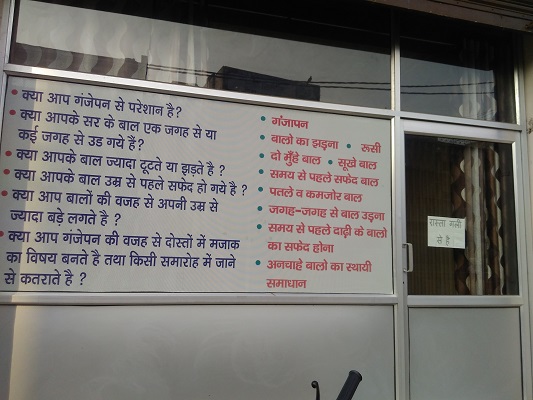 • क्या आप गंजेपन से परेशान है?
• क्या आपके सर के बाल एक जगह से या
कई जगह से उड गये हैं?
• क्या आपके बाल ज्यादा टूटते या झड़ते है ?
• क्या आपके बाल उम्र से पहले सफेद हो गये है ?
• क्या आप बालों की वजह से अपनी उम्र से
ज्यादा बड़े लगते है ?
• क्या आप गंजेपन की वजह से दोस्तों में मजाक
का विषय बनते है तथा किसी समारोह में जाने
से कतराते है ?
• गंजापन
• बालो का झड़ना • रूसी
• दो मुँहे बाल • सूखे बाल
• समय से पहले सफेद बाल
• पतले व कमजोर बाल
• जगह-जगह से बाल उड़ना
• समय से पहले दाढ़ी के बालो
का सफेद होना
• अनचाहे बालो का स्थायी
समाधान
रास्ता गली
से है